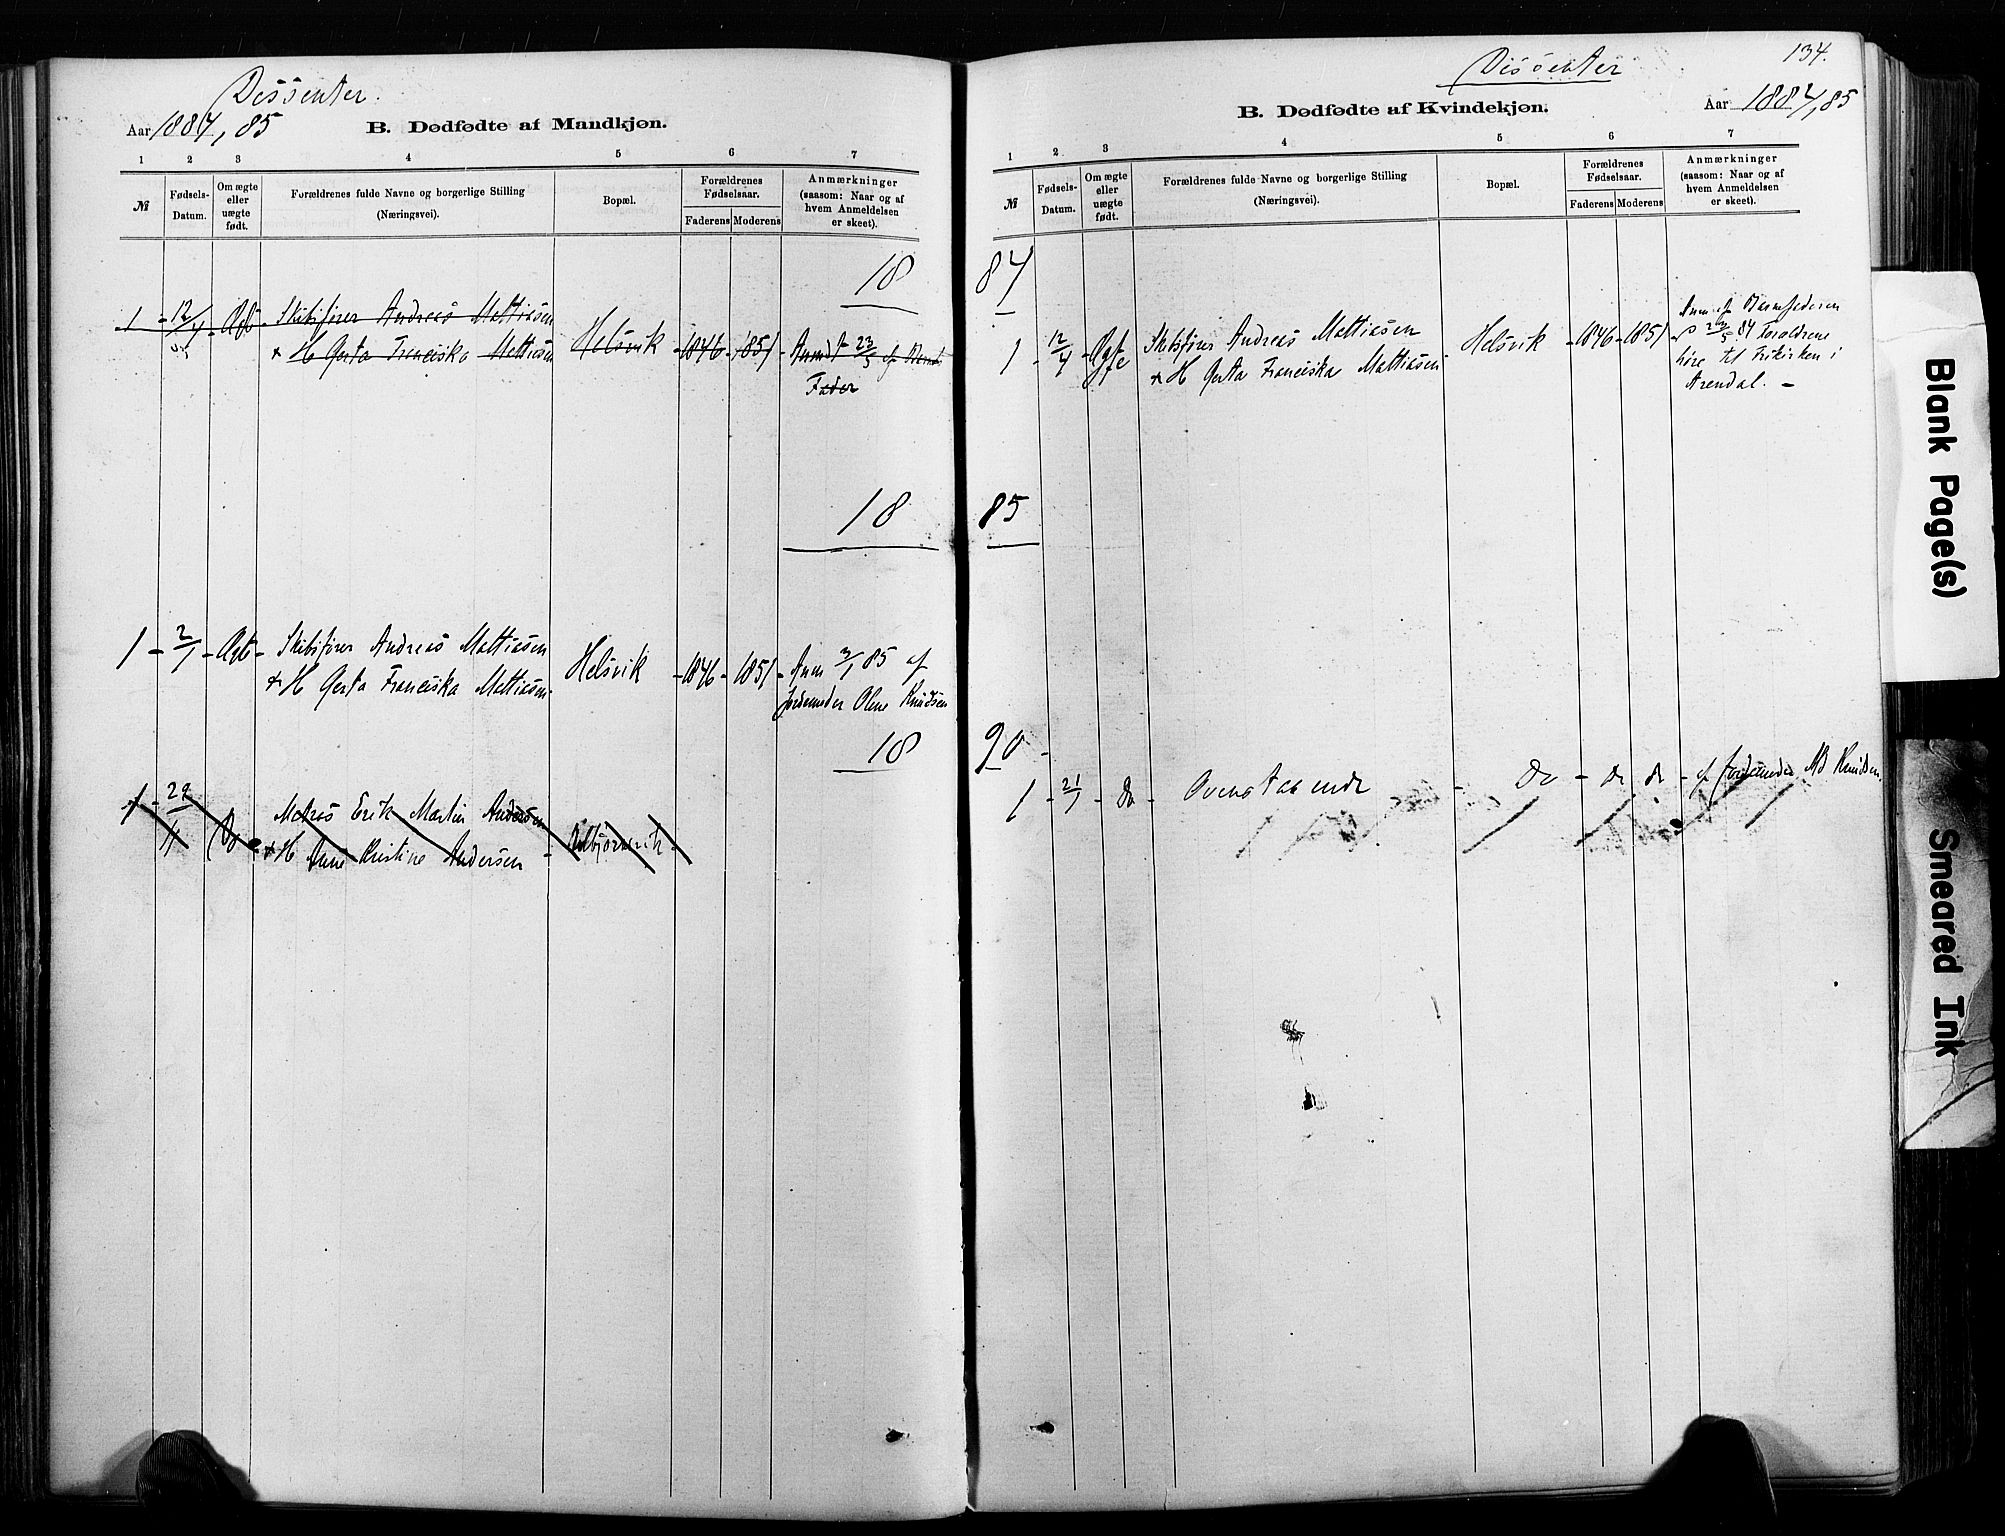 Dissenter.
Aar 1884, 85
B. Dødfødte af Mandkjøn.
1 2 3 4 5 6 7
№
Fødsels-Datum.
Om ægte eller uægte født.
Forældrenes fulde Navne og borgerlige Stilling (Næringsvei).
Bopæl.
Forældrenes Fødselsaar.
Faderens Moderens
Anmærkninger (saasom: Naar og af hvem Anmeldelsen er skeet).
18
1 - 12/4 - Ægte - Skibsfører Andreas Mattiasen
+ H Gerta Franciska Mattiasen
Helsvik - 1846 - 1851
Anmdt 23/5 af
Fader
18
1 - 2/1 - Ægte - Skibsfører Andreas Mattiasen
+ H Gerta Franciska Mattiasen
Helsvik - 1846 - 1851 - Anm 3/1 85 af
Jordemoder Olene Knudsen
18
1 - 29/11 Do Matros Erik Martin Andersen
+ H Anne Kristine Andersen -
Dissenter
134.
Aar 1884, 85
B. Dødfødte af Kvindekjøn.
1 2 3 4 5 6 7
№
Fødsels-Datum.
Om ægte eller uægte født.
Forældrenes fulde Navne og borgerlige Stilling (Næringsvei).
Bopæl.
Forældrenes Fødselsaar.
Faderens Moderens
Anmærkninger (saasom: Naar og af hvem Anmeldelsen er skeet).
84
1 - 12/4 - Ægte Skibsfører Andreas Mattiasen
+ H Gerta Franciska Mattiasen
Helsvik - 1846 - 1851
Anm af Barnefaderen
23/5 84 Forældrene
høre til Frikirken i
Arendal. -
85
90
1 - 2/1 - do - Ovenstaaende - do - do do - af Jordemoder Knudsen
Blank Page(s)
Smeared Ink